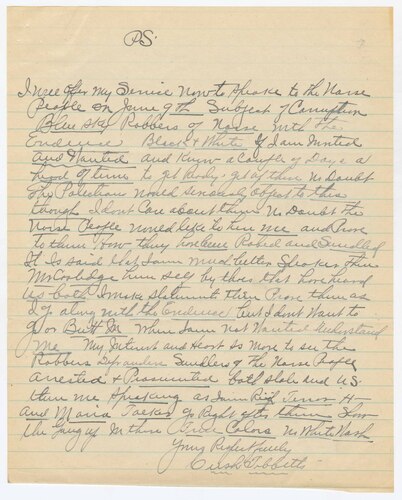 PS
I will offer my Service Now to Speake to the Nome
People on June 9th Subject of Corruption
Blue sky Robbers of Nome with The
Evidence Black & White If I am Invited
and Wanted and Know a Couple of Days a
head of time to get Ready get of there no Doubt
the Politicians would seriously object to this
though I dont Care about them no Doubt the
Nome People would like to hear me and Prove
to them How they have been Robed and Swindled
It Is said that I am much better Speaker than
Mr Coolidge him self by those that have heard
us both I make Statements then Prove them as
I go along with the Evidence but I dont Want to
go or Butt In When I am not Wanted Understand
me My Interest and Heart Is more to see the
Robbers Defrauders Swindlers of the Nome People
arrested & Prosecuted both state and U.S.
then me Speaking as I am Rip Terror H
and Mama Talker go Right after them Show
the gang up In there True Colors No White Wash
Yours Respectfully
Cush Tebbetts